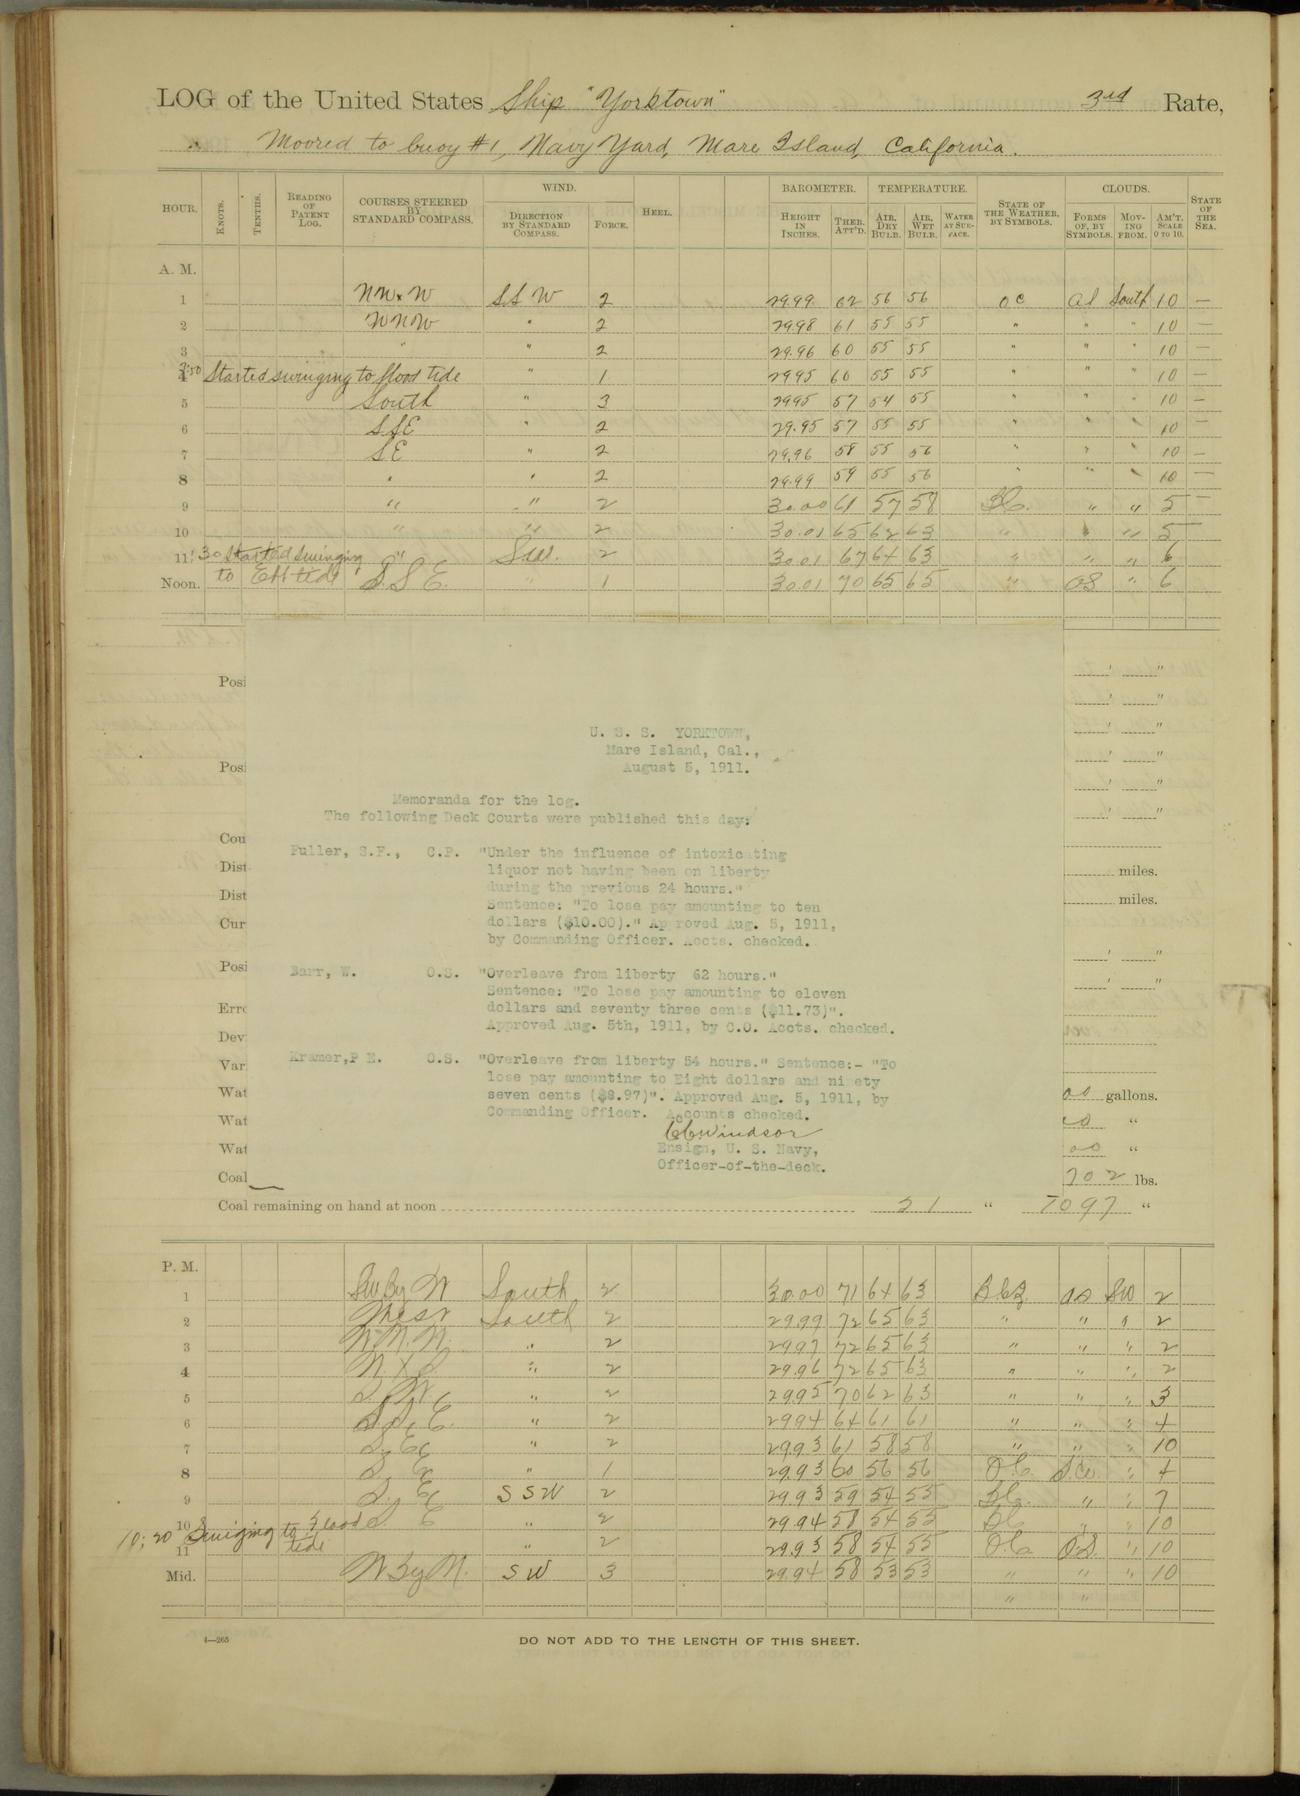 LOG of the United States Ship "Yorktown" 3rd Rate,
Moored to buoy #1, Navy Yard, Mare Island, California.
HOUR. KNOTS. TENTHS. READING OF PATENT LOG. COURSES STEERED BY STANDARD COMPASS. WIND. DIRECTION BY STANDARD COMPASS. FORCE. HEEL. BAROMETER. HEIGHT IN INCHES. THER. ATT'D. TEMPERATURE. AIR, DRY BULB. AIR, WET BULB. WATER AT SURFACE. STATE OF THE WEATHER, BY SYMBOLS. CLOUDS. FORMS OF, BY SYMBOLS. MOVING FROM. AM'T. SCALE 0 TO 10. STATE OF THE SEA.
A. M.
1 NWxW SSW 2 29.99 62 56 56 oc South 10 —
2 WNW " 2 29.98 61 55 55 " " " 10 —
3 " " 2 29.96 60 55 55 " " " 10 —
4 Started swinging to flood tide " 1 29.95 60 55 55 " " " 10 —
5 South " 3 29.95 57 54 55 " " " 10 —
6 SSE " 2 29.95 57 55 55 " " " 10
7 SE " 2 29.96 58 55 56 " " " 10 —
8 " " 2 29.99 59 55 56 " " " 10 —
9 " " 2 30.00 61 57 58 " " 5 —
10 " " 2 30.01 65 62 63 " " 5
11:30 Started swinging " SW. 2 30.01 67 64 63 " " " 6
Noon. to Ebb tide S. S E. " 1 30.01 70 65 65 " " 6
Posi
Posi
Cou
Dist miles.
Dist miles.
Cur
Posi
Erro
Dev
Var
Wat 00 gallons.
Wat 00 "
Wat 00 "
Coal 702 lbs.
U. S. S. YORKTOWN,
Mare Island, Cal.,
August 5, 1911.
Memoranda for the log.
The following Deck Courts were published this day:
Fuller, S.F., C.P. "Under the influence of intoxicating
liquor not having been on liberty
during the previous 24 hours."
Sentence: "To lose pay amounting to ten
dollars ($10.00)." Approved Aug. 5, 1911,
by Commanding Officer. Accts. checked.
Barr, W. O.S. "Overleave from liberty 62 hours."
Sentence: "To lose pay amounting to eleven
dollars and seventy three cents ($11.73)".
Approved Aug. 5th, 1911, by C.O. Accts. checked.
Kramer,P E. O.S. "Overleave from liberty 54 hours." Sentence:- "To
lose pay amounting to Eight dollars and ninety
seven cents ($8.97)". Approved Aug. 5, 1911, by
Commanding Officer. Accounts checked.
CCWindsor
Ensign, U. S. Navy,
Officer-of-the-deck.
Coal remaining on hand at noon 21 " "
P. M.
1 SW By W South 2 30.00 71 64 63 SW 2
2 West South 2 29.99 72 65 63 " " " 2
3 " 2 29.97 72 65 63 " " " 2
4 " 2 29.96 72 65 63 " " " 2
5 " 2 29.95 70 62 63 " " " 3
6 " 2 29.94 64 61 61 " " " 4
7 " 2 29.93 61 58 58 " " " 10
8 " 1 29.93 60 56 56 " 4
9 SSW 2 29.93 59 54 55 " " 7
10 " 2 29.94 58 54 55 " " 10
10:20 Swinging to flood tide
11 " 2 29.93 58 54 55 " 10
Mid. SW 3 29.94 58 53 53 " " " 10
4—265
DO NOT ADD TO THE LENGTH OF THIS SHEET.